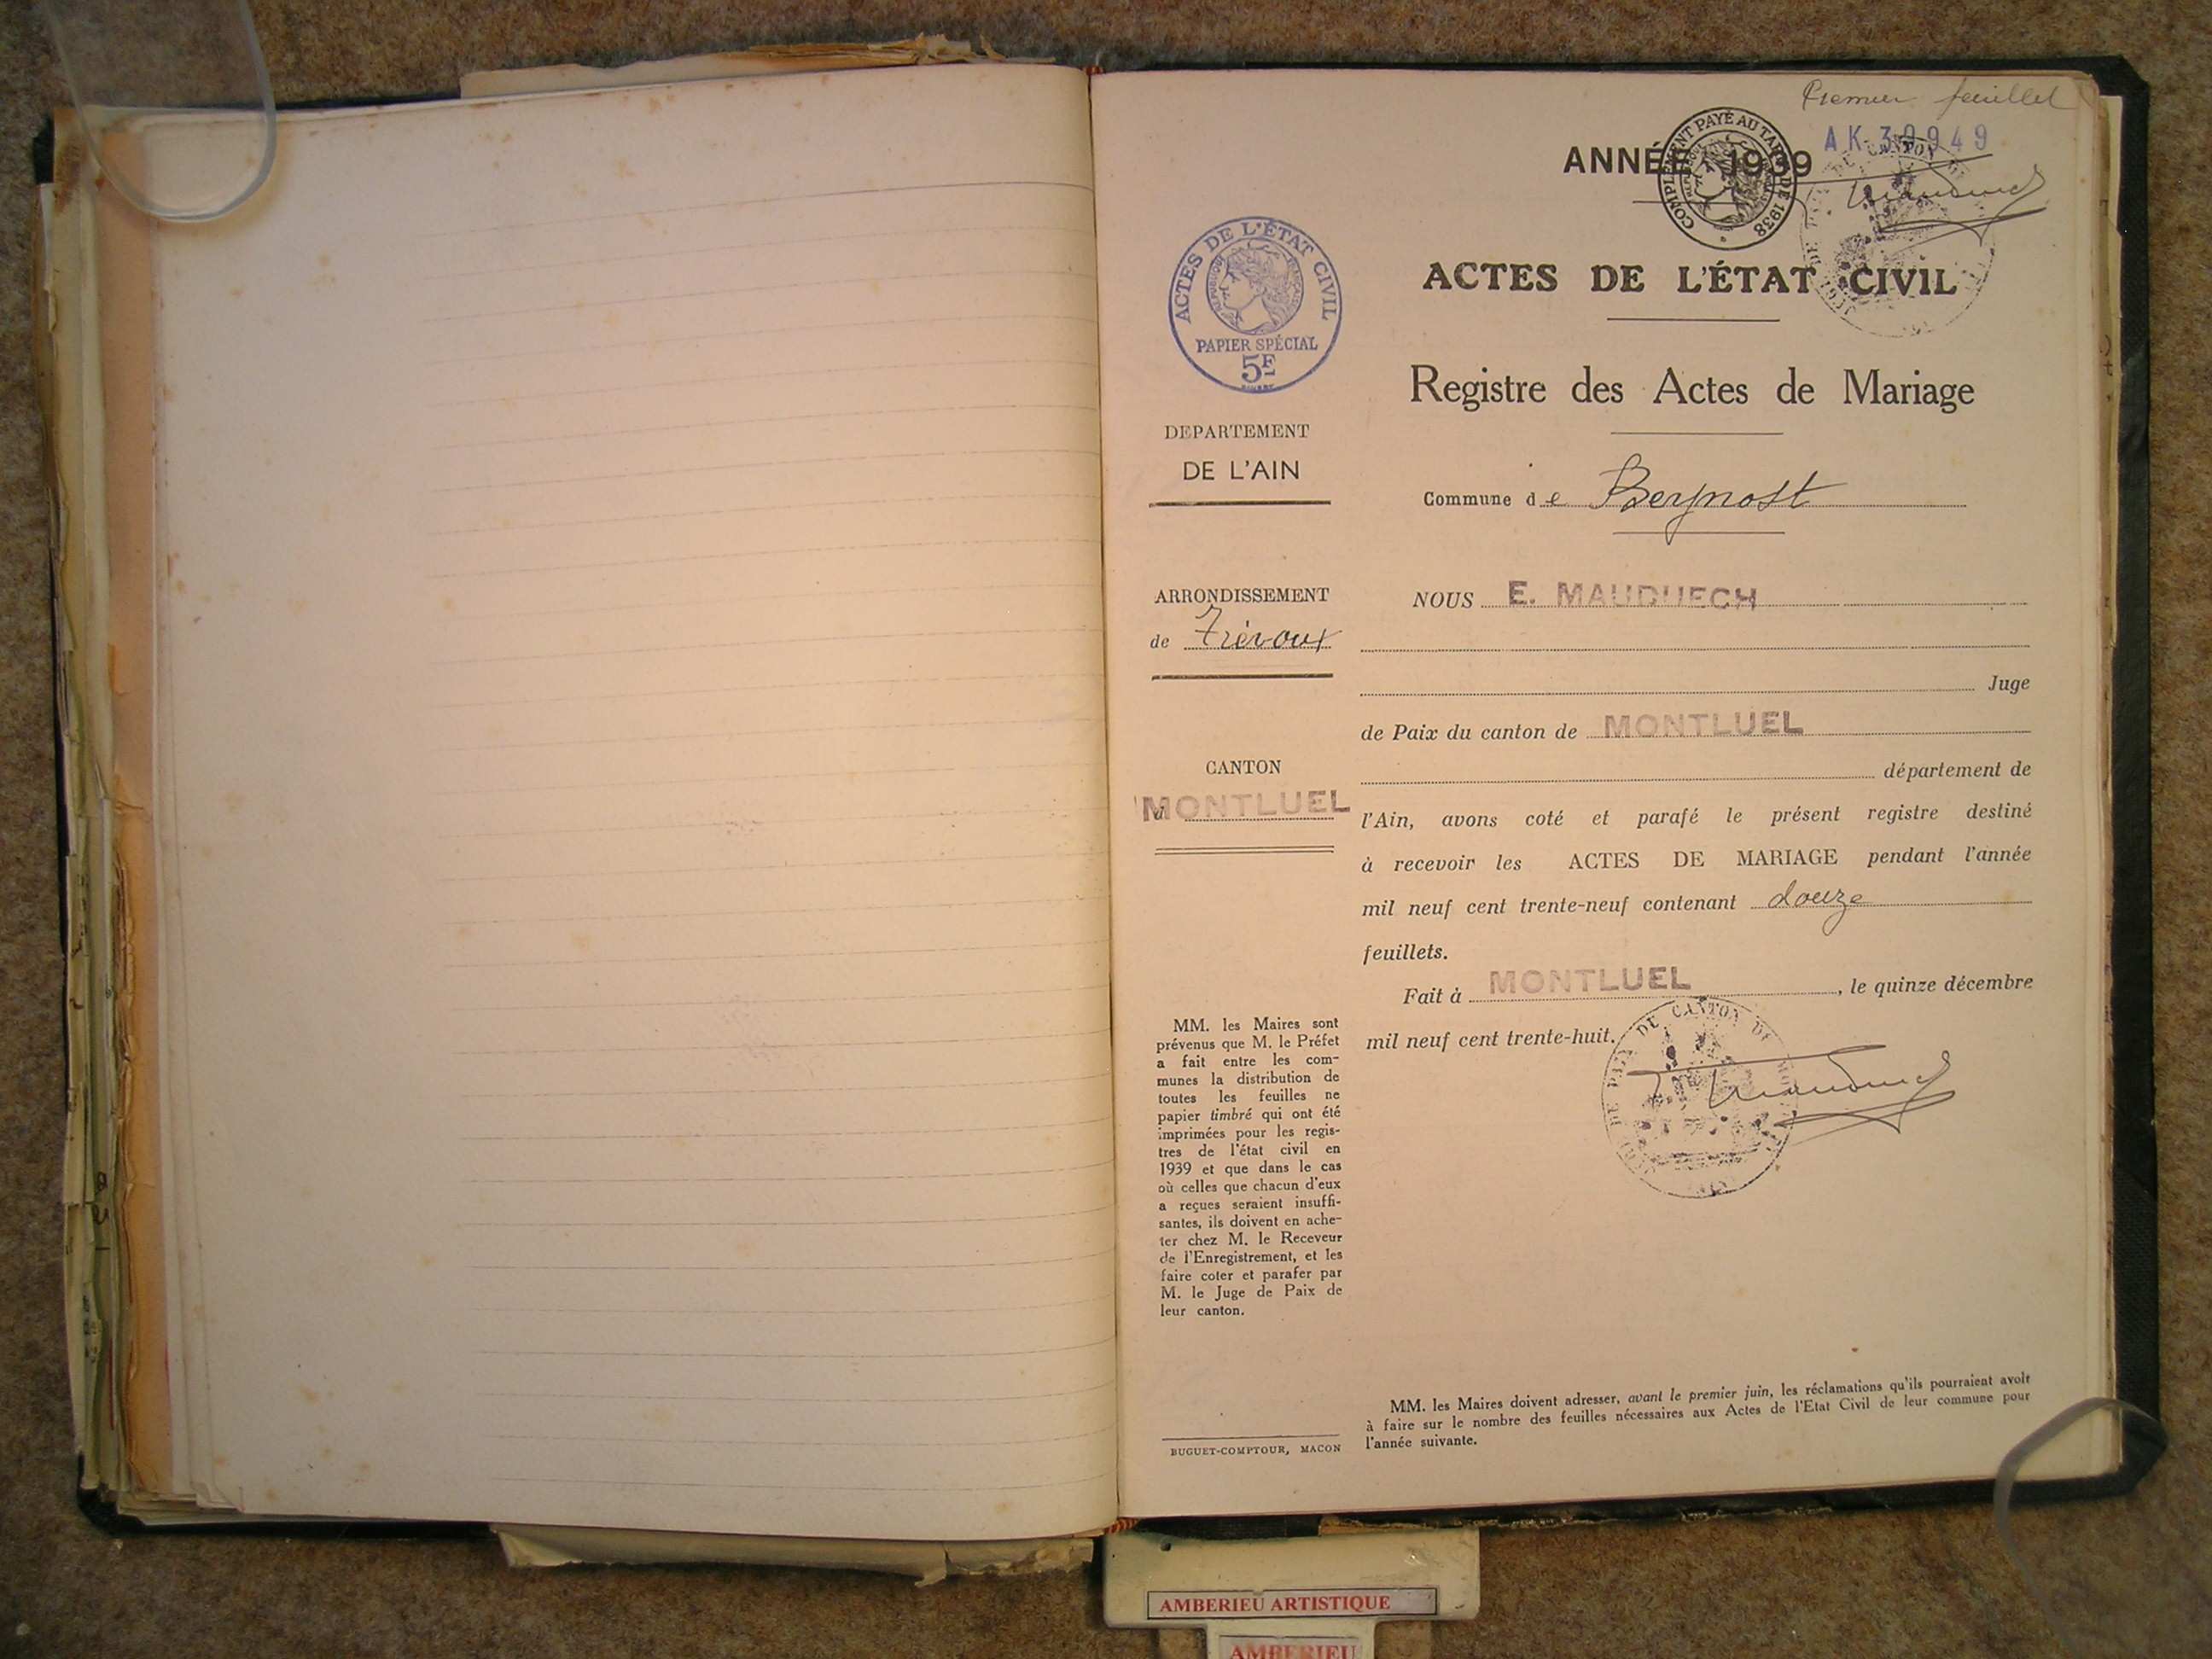 Premier feuillet
AK 30949
ANNÉE 1939
COMPLÉMENT PAYÉ AU TARIF DE 1938
ACTES DE L'ÉTAT CIVIL
RÉPUBLIQUE FRANÇAISE
PAPIER SPÉCIAL
5F
ACTES DE L'ÉTAT CIVIL
Registre des Actes de Mariage
DEPARTEMENT
DE L'AIN
Commune de Beynost
ARRONDISSEMENT
de Trévoux
CANTON
MONTLUEL
NOUS E. MAUDUECH
Juge
de Paix du canton de MONTLUEL
département de
l'Ain, avons coté et parafé le présent registre destiné
à recevoir les ACTES DE MARIAGE pendant l'année
mil neuf cent trente-neuf contenant douze
feuillets.
Fait à MONTLUEL, le quinze décembre
mil neuf cent trente-huit.
DE PAIX DU CANTON DE
MM. les Maires sont
prévenus que M. le Préfet
a fait entre les com-
munes la distribution de
toutes les feuilles ne
papier timbré qui ont été
imprimées pour les regis-
tres de l'état civil en
1939 et que dans le cas
où celles que chacun d'eux
a reçues seraient insuffi-
santes, ils doivent en ache-
ter chez M. le Receveur
de l'Enregistrement, et les
faire coter et parafer par
M. le Juge de Paix de
leur canton.
BUGUET-COMPTOUR, MACON
MM. les Maires doivent adresser, avant le premier juin, les réclamations qu'ils pourraient avoir
à faire sur le nombre des feuilles nécessaires aux Actes de l'Etat Civil de leur commune pour
l'année suivante.
AMBERIEU ARTISTIQUE
AMBERIEU